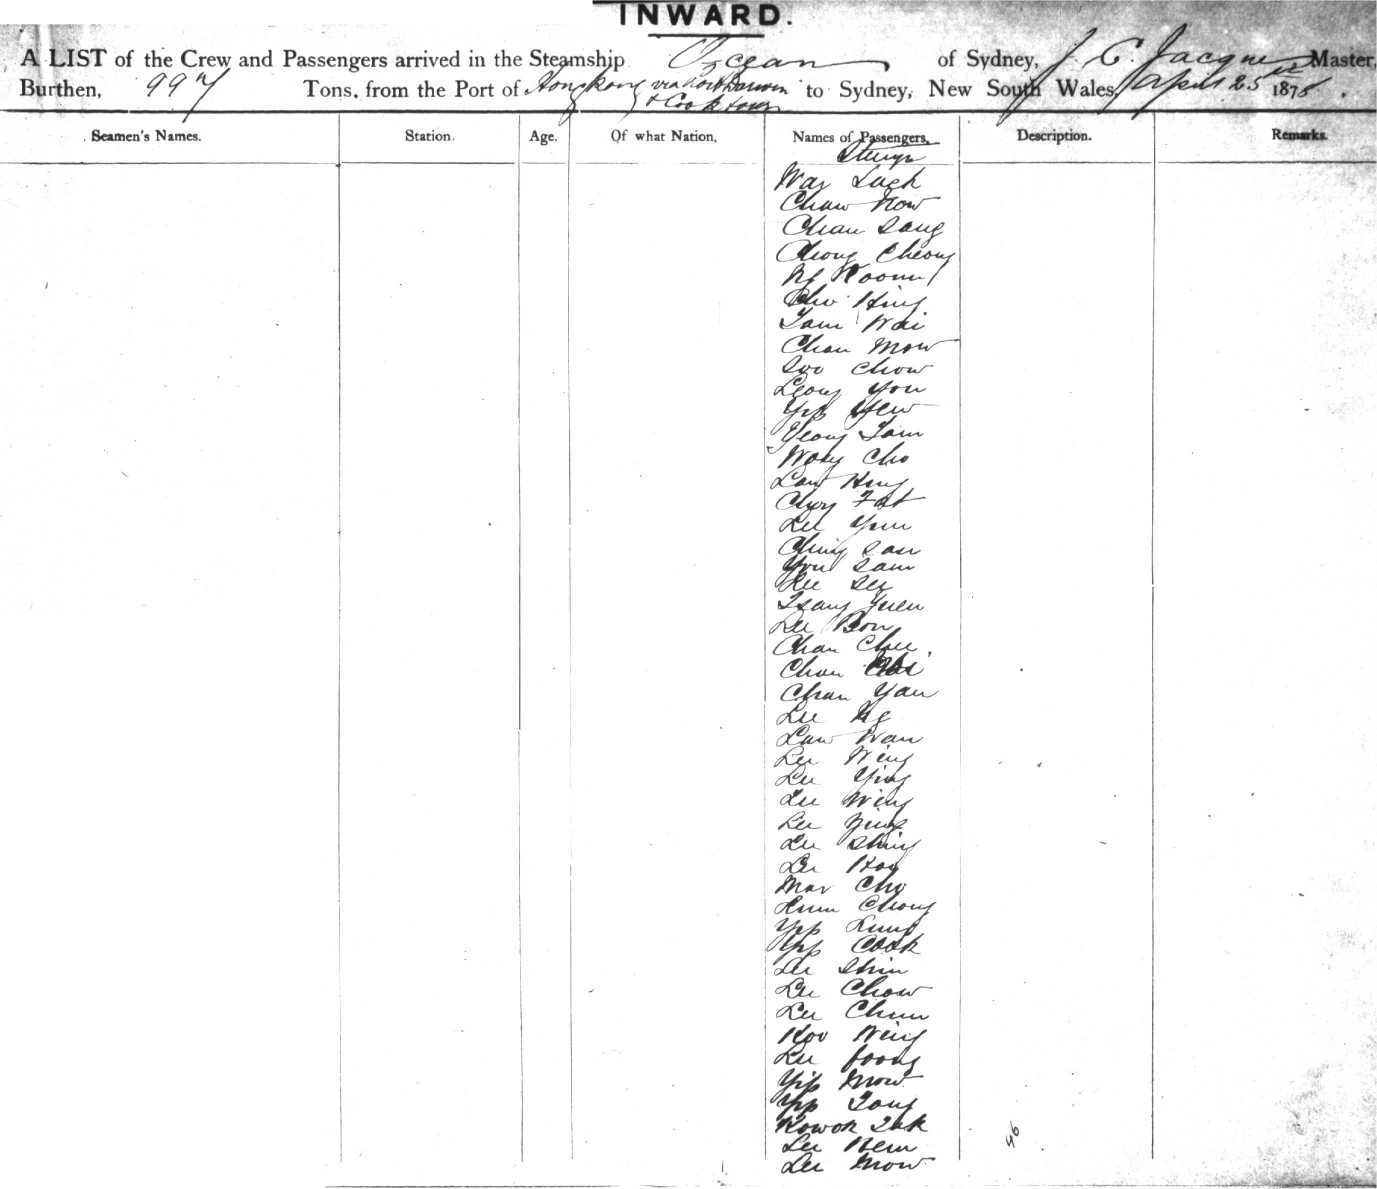 INWARD.
A LIST of the Crew and Passengers arrived in the Steamship Ocean of Sydney, J. C. Jacques Master,
Burthen, 997 Tons, from the Port of Hongkong via Port Darwin & Cooktown to Sydney, New South Wales, April 25th 1875.
Seamen's Names. Station. Age. Of what Nation. Names of Passengers. Description. Remarks.
Way Luck
Chaw Now
Chan Sang
Chong Cheong
Ng
Cho Hing
Tam Wai
Chan Mow
Soo Chow
Leong You
Yip Yew
Yeong Tam
Wong Cho
Law Hing
Choy Fat
Lee Yum
Ching San
You Sam
Lee See
Tsang Yuen
Lee Bon
Chan Chee
Chan
Chan Yau
Lee Ng
Law Wan
Lee Wing
Lee Ying
Lee Wing
Lee
Lee Shing
Lee Hoy
Mar Cho
Chong
Yip Lung
Yip Cook
Lee Shin
Lee Chow
Lee Chun
Koo Wing
Lee Foong
Yip Mow
Yip Tong
Kowok
Lee
Lee Mow
46